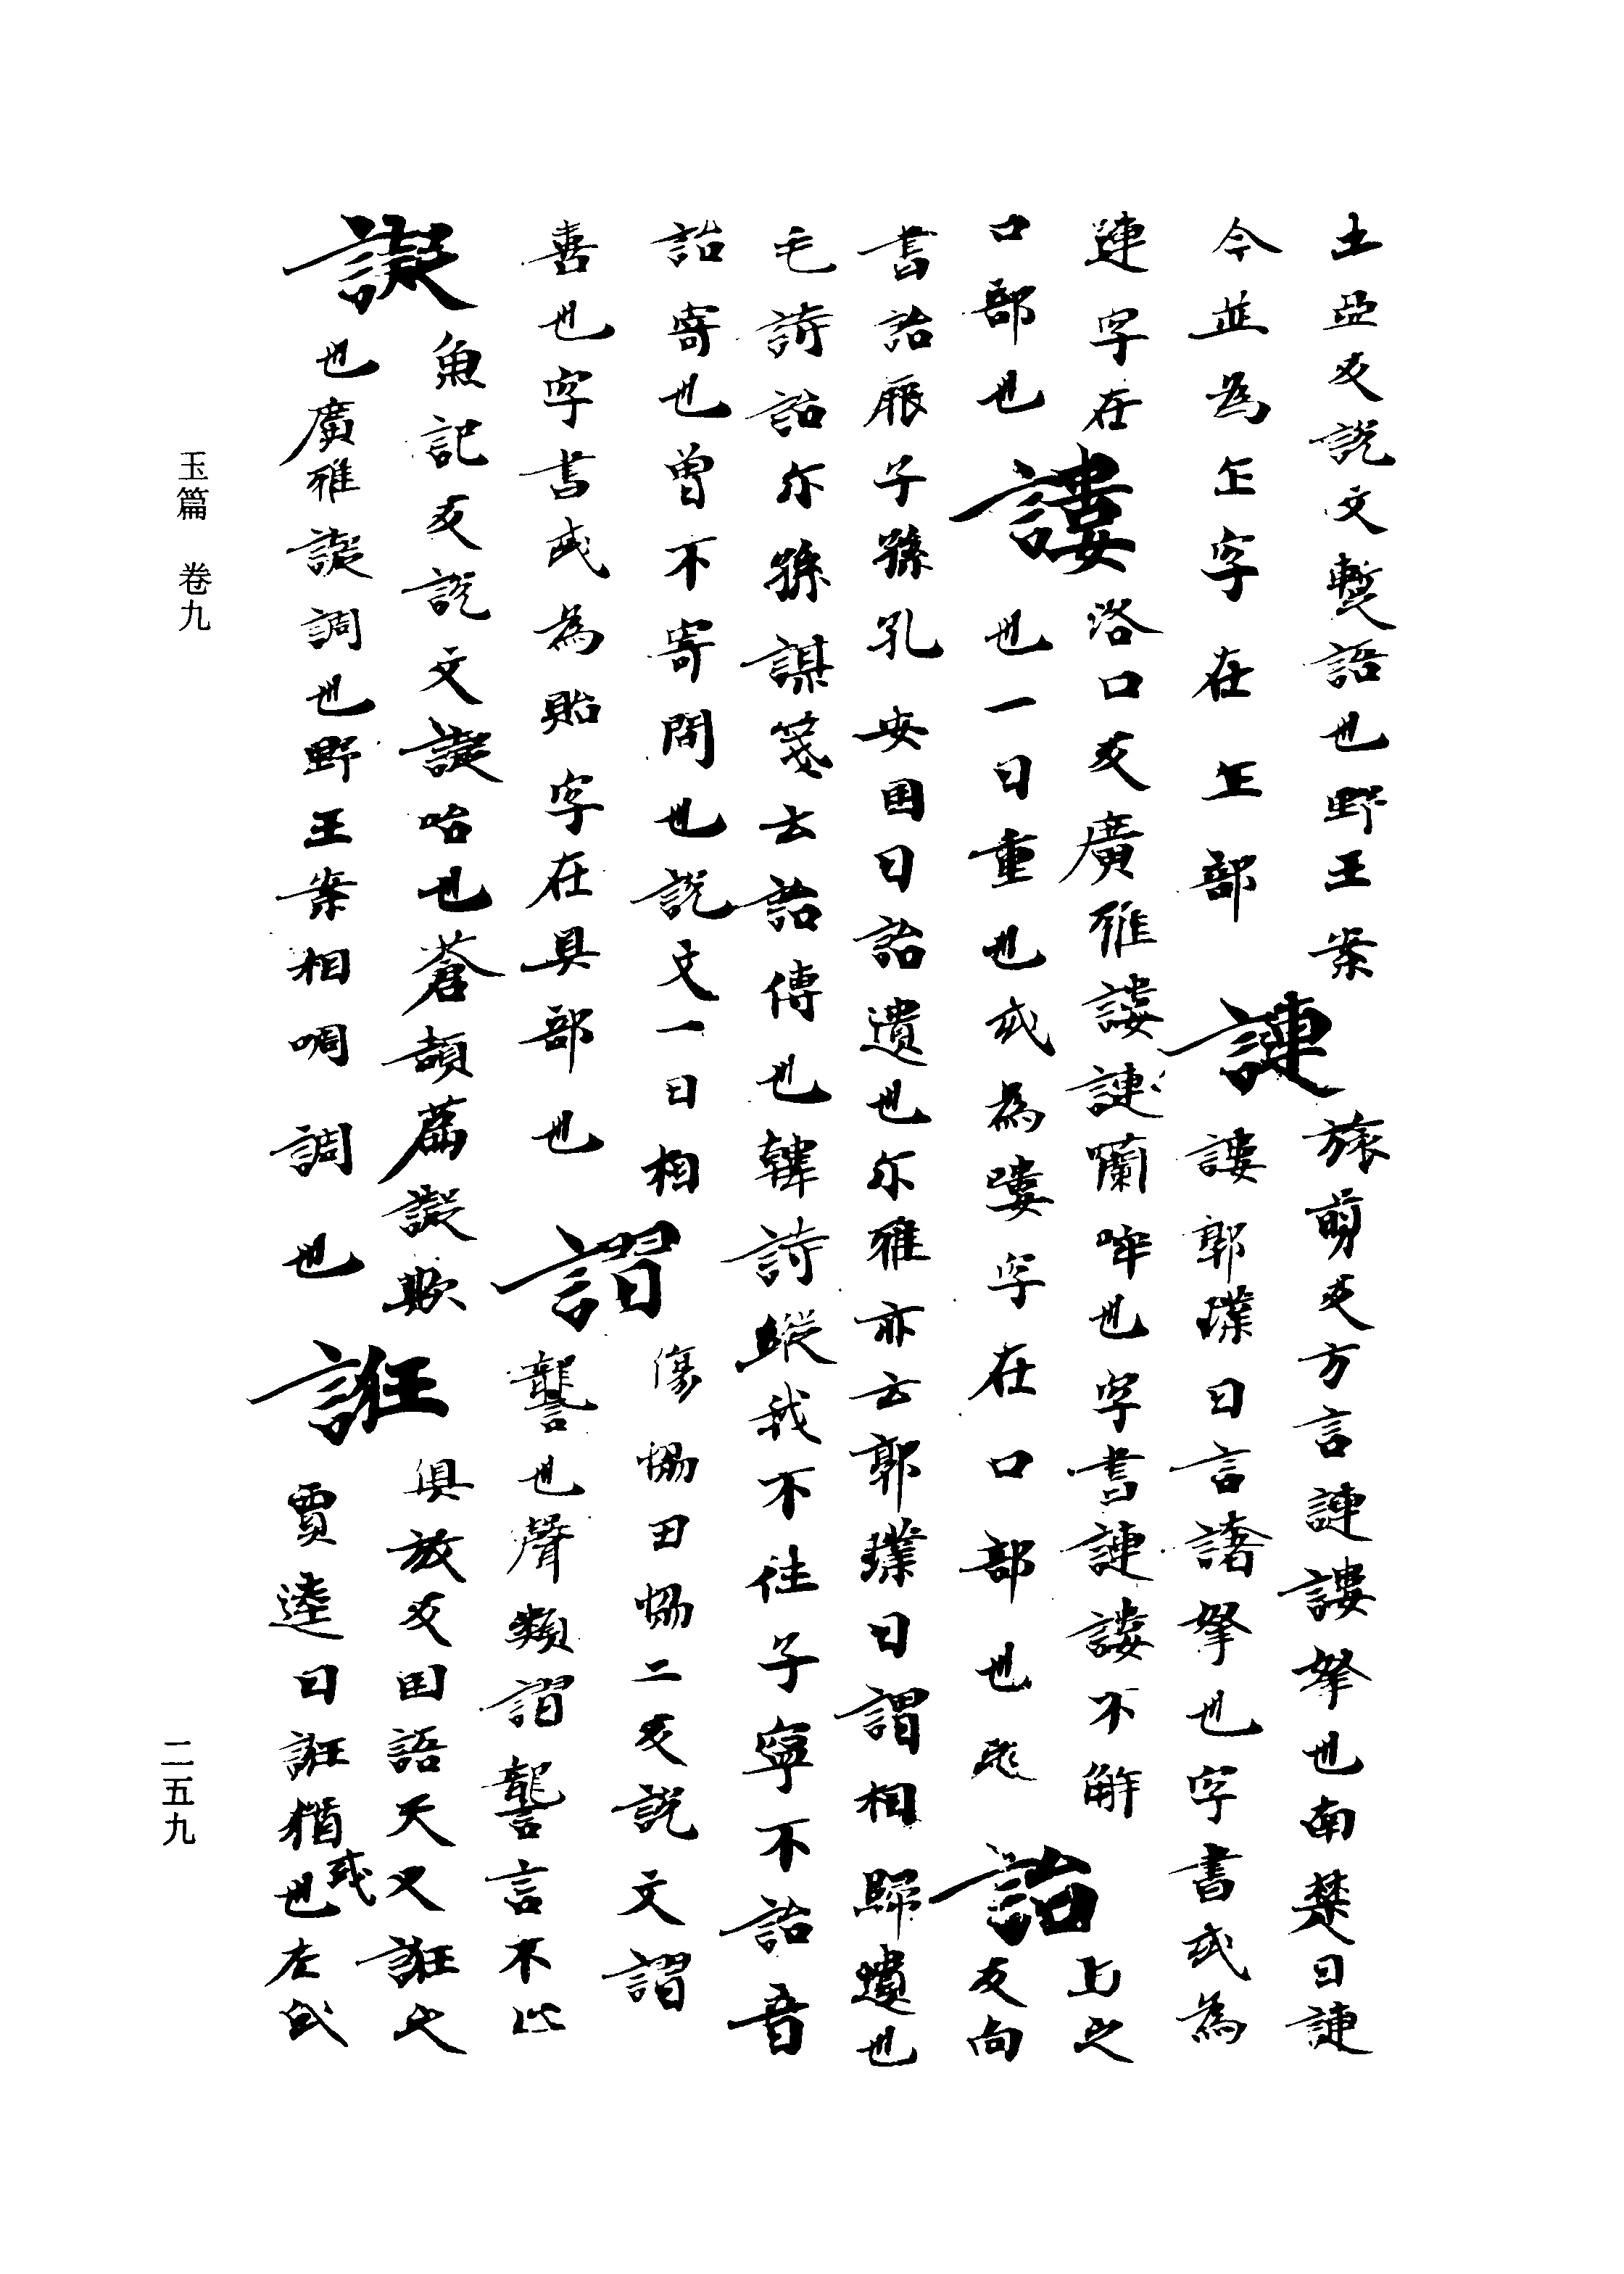 土亞反說文暫語也野王案
今並為𠱾字在𠱾部
謰
旅剪反方言謰謱拏也南楚曰謰
謱郭璞曰言譇拏也字書或為
連字在
口部也
謱
洛口反廣雅謱謰囒哰也字書謰謱不解
也一曰重也或為嘍字在口部也
詒
上之
反向
書詒厥子孫孔安囯曰詒遺也尔雅亦云郭璞曰謂相歸遺也
毛詩詒尔孫謀箋云詒傳也韓詩縱我不往子寧不詒音
詒寄也曾不寄問也說文一曰相
喜也字書或為貽字在貝部也
謵
傷協田協二反說文謵
讋也聲類謵讋言不止
譺
魚記反說文譺咍也蒼頡篇譺欺
也廣雅譺調也野王案相啁調也
誑
俱放反囯語天又誑之
賈逵曰誑猶或也左氏
玉篇 卷九
二五九